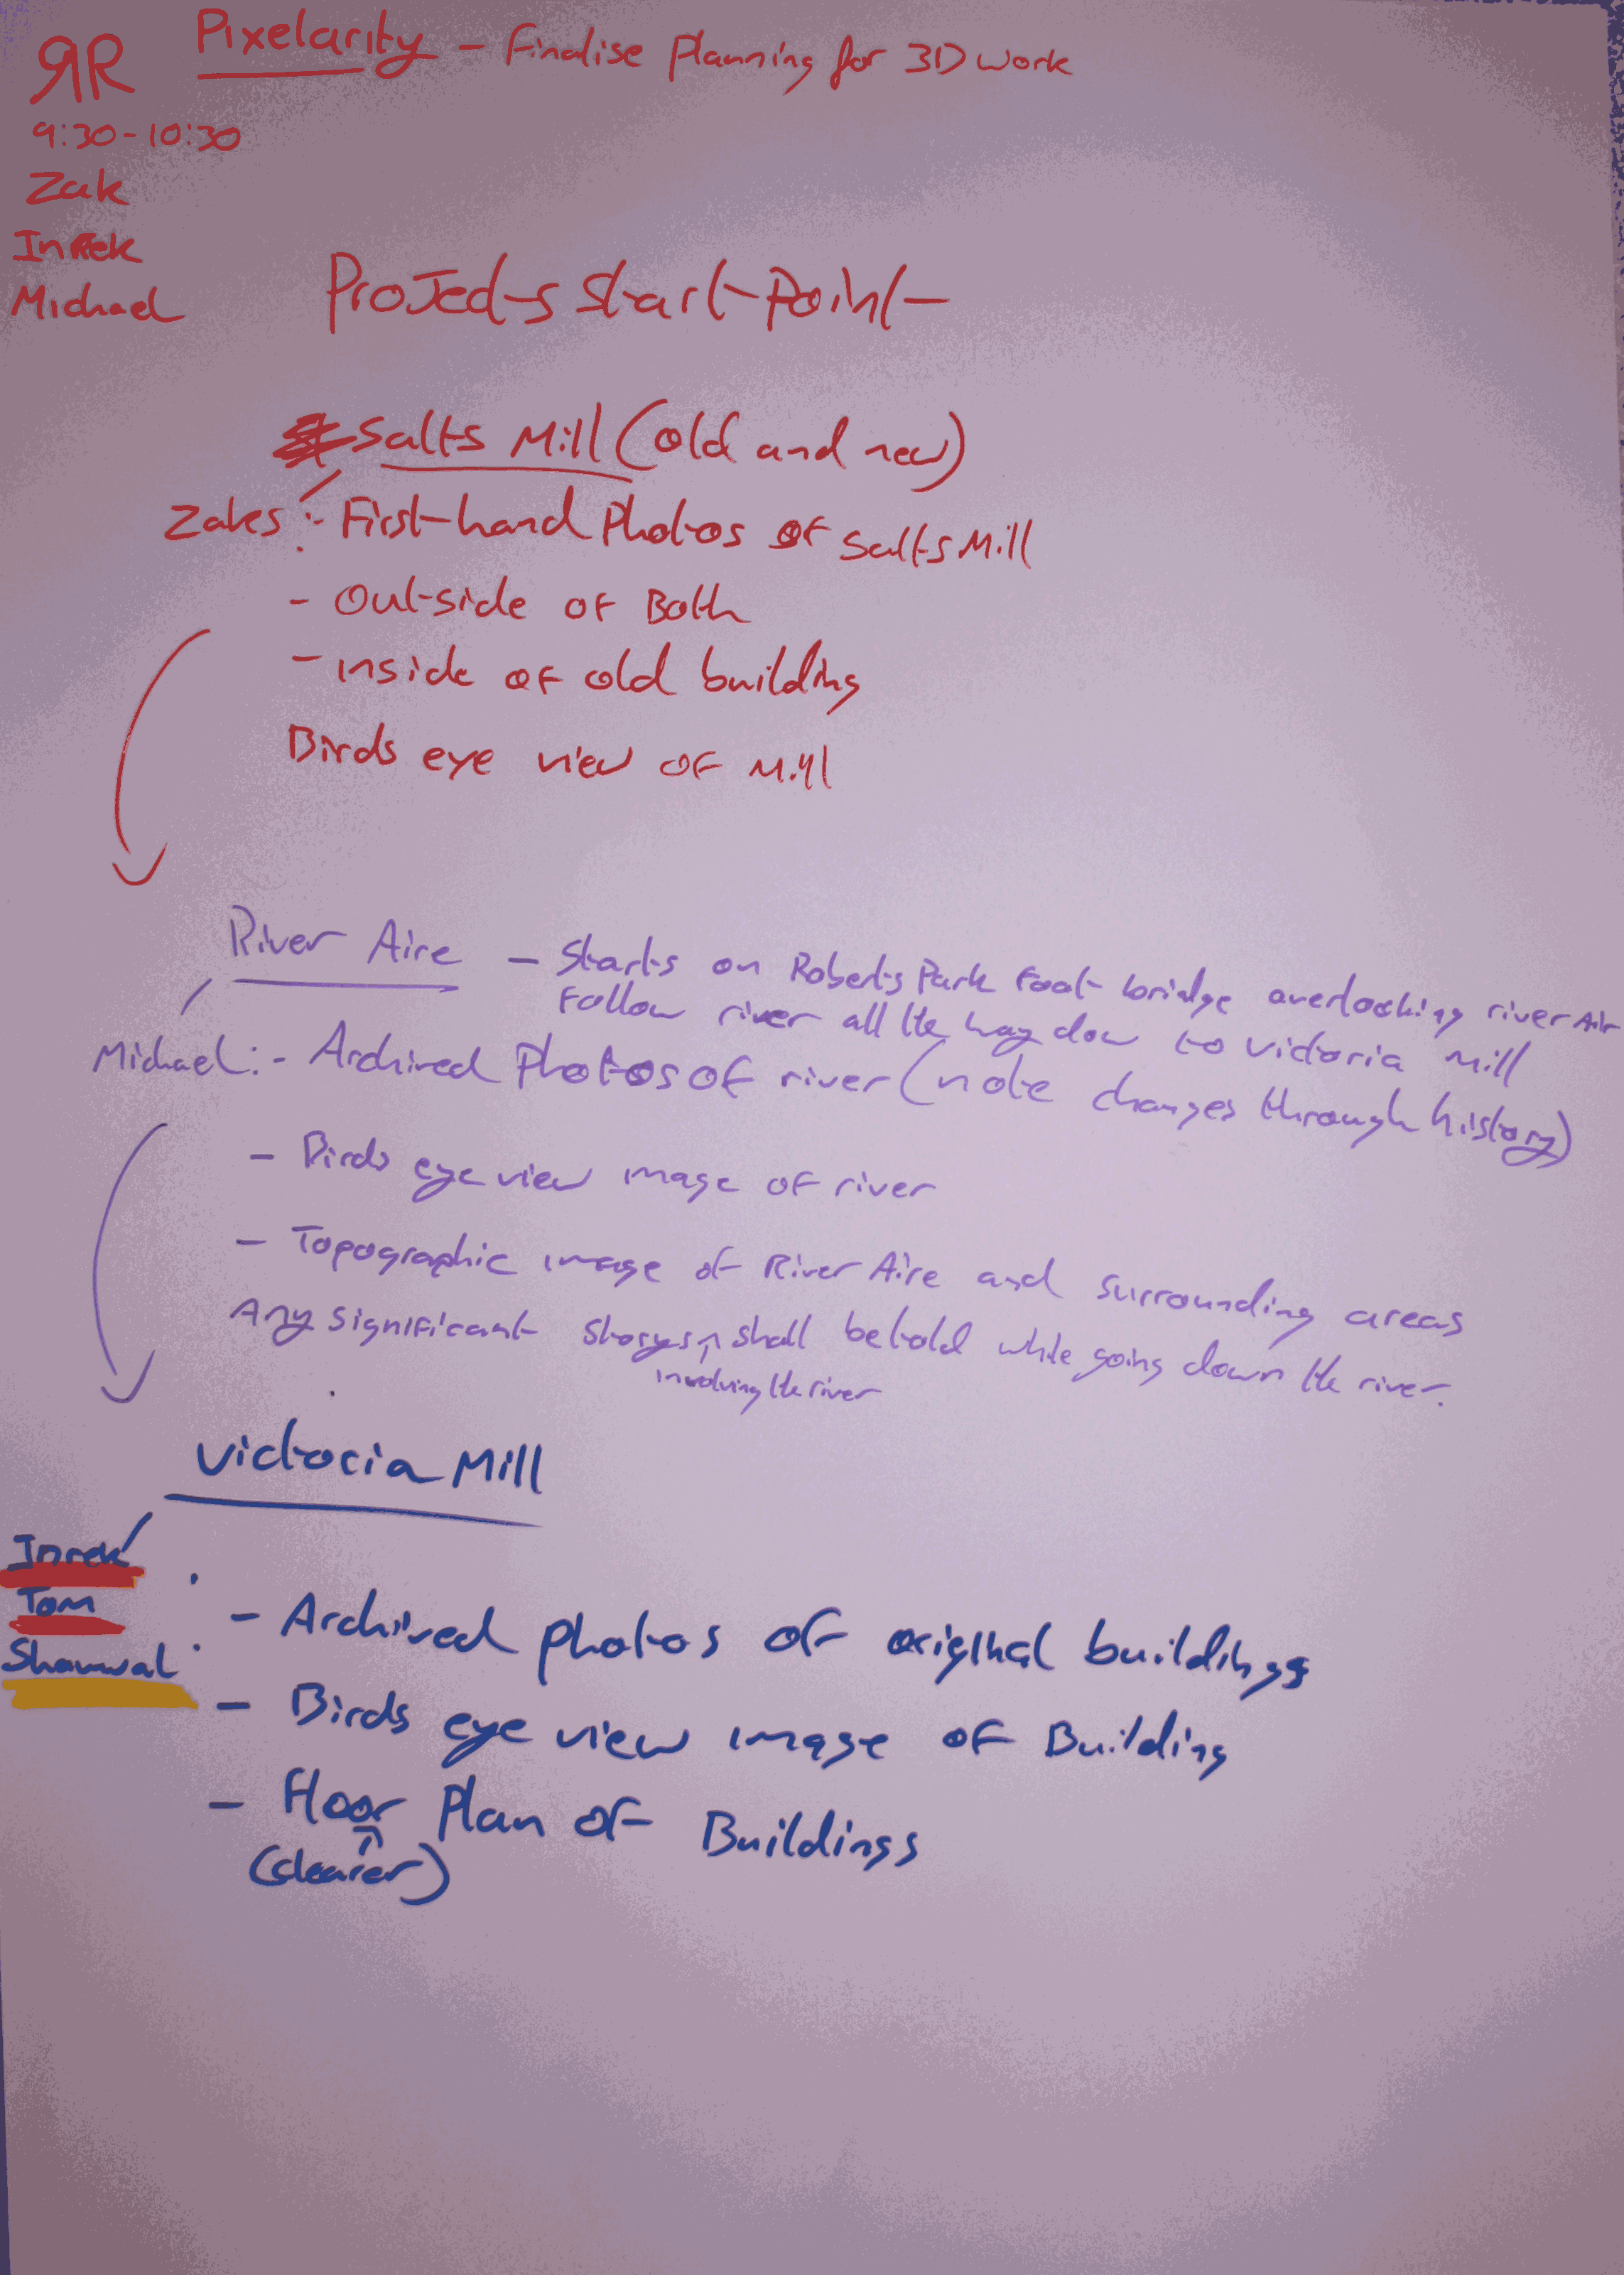 RR Pixelarity - Finalise Planning for 3D work
9:30-10:30
Zak
Inrek
Michael
Projects Start-Point-
Salts Mill (old and new)
Zaks :- First-hand Photos of Salts Mill
- Outside of Both
- inside of old building
Birds eye view of Mill
River Aire - Starts on Roberts Park Foot bridge overlooking river Air
Follow river all the way dow to Victoria Mill
Michael :- Archived Photos of river (note changes through history)
- Birds eye view image of river
- Topographic image of River Aire and surrounding areas
Any significant storys shall be told while going down the river.
involving the river
Victoria Mill
Inrek
Tom
- Archived photos of original buildings
Shanwal
- Birds eye view image of Building
- Floor Plan of Buildings
(clearer)